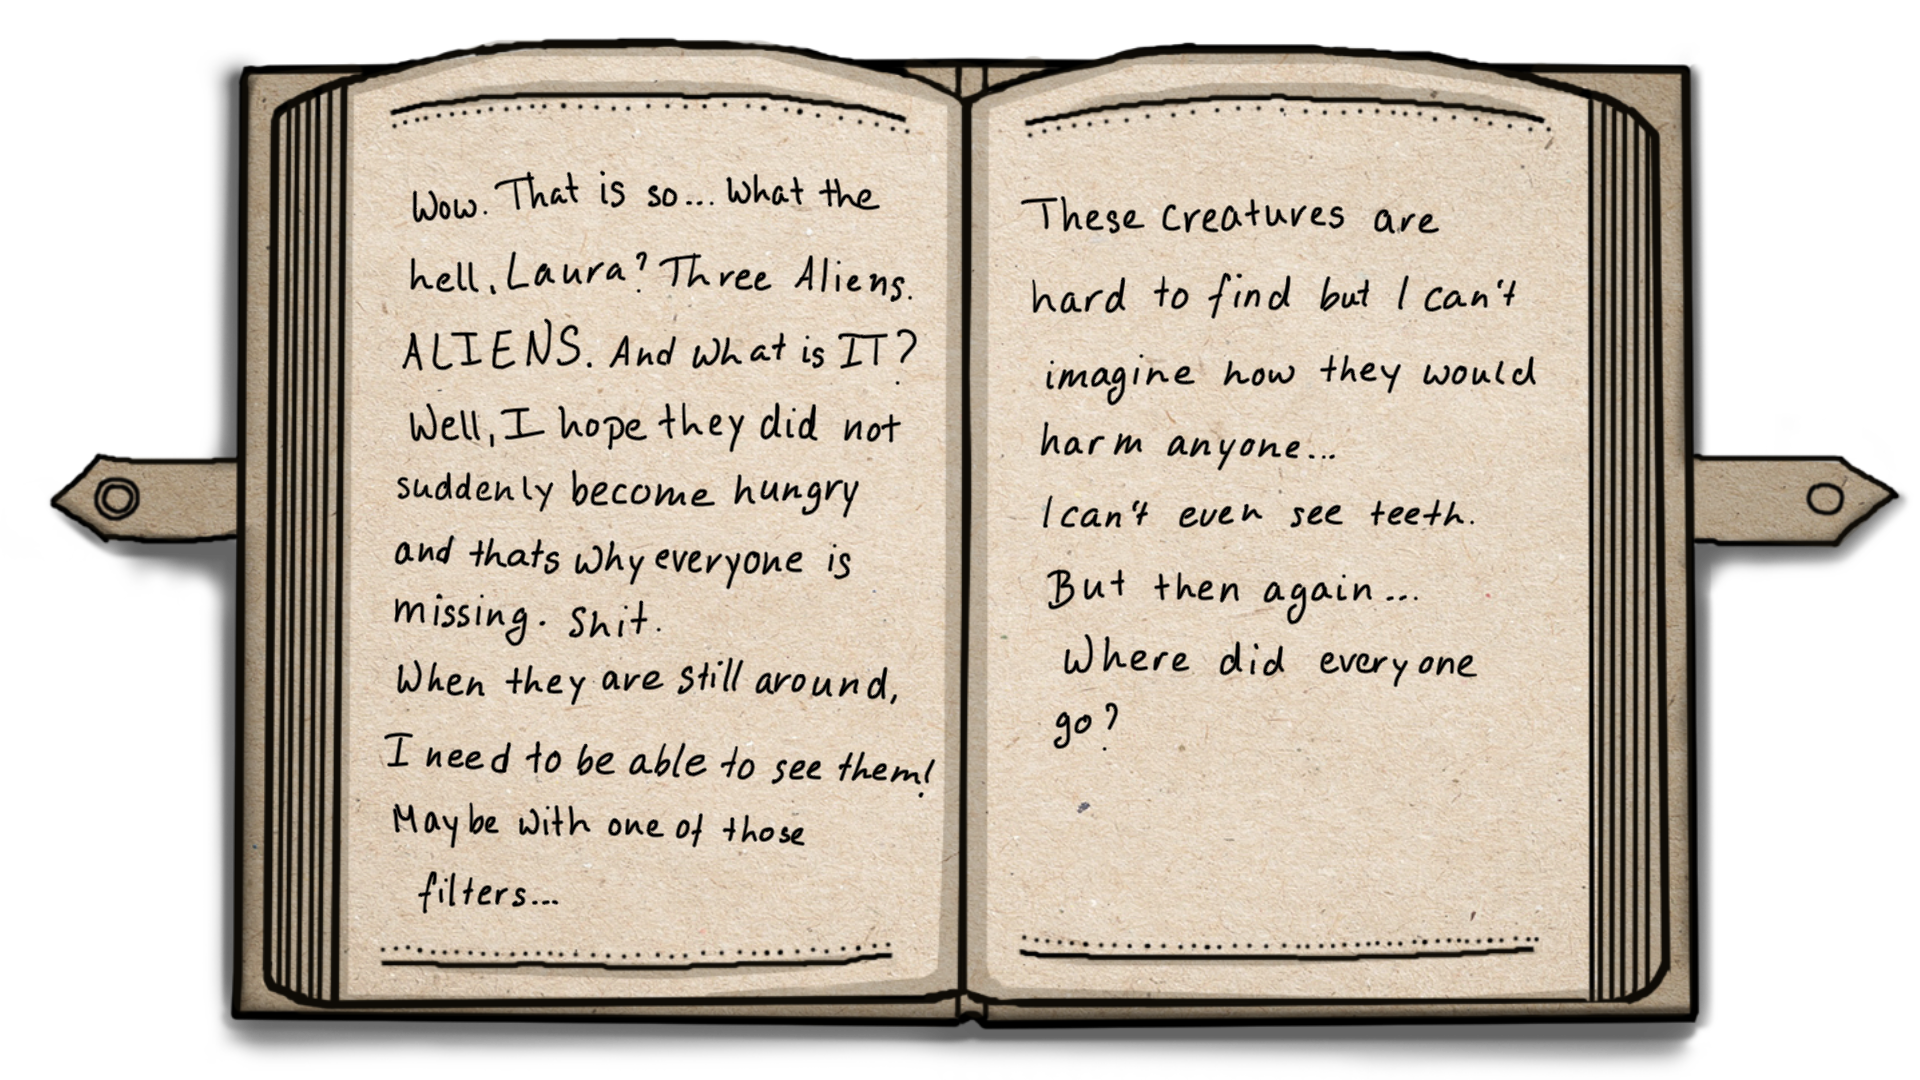 Wow. That is so... What the
hell, Laura? Three Aliens.
ALIENS. And what is IT?
Well, I hope they did not
suddenly become hungry
and thats why everyone is
missing. Shit.
When they are still around,
I need to be able to see them!
Maybe with one of those
filters...
These creatures are
hard to find but I can't
imagine how they would
harm anyone...
I can't even see teeth.
But then again...
Where did everyone
go?